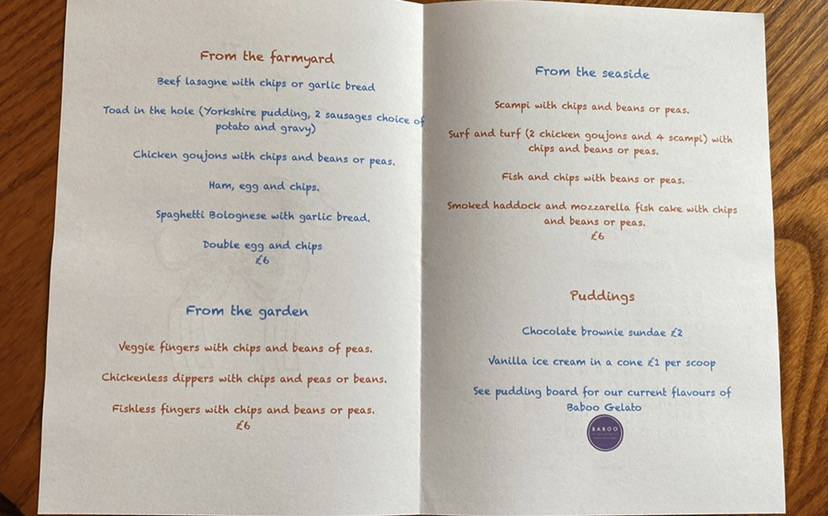 From the farmyard
Beef lasagne with chips or garlic bread
Toad in the hole (Yorkshire pudding, 2 sausages choice of
potato and gravy)
Chicken goujons with chips and beans or peas.
Ham, egg and chips.
Spaghetti Bolognese with garlic bread.
Double egg and chips
£6
From the garden
Veggie fingers with chips and beans of peas.
Chickenless dippers with chips and peas or beans.
Fishless fingers with chips and beans or peas.
£6
From the seaside
Scampi with chips and beans or peas.
Surf and turf (2 chicken goujons and 4 scampi) with
chips and beans or peas.
Fish and chips with beans or peas.
Smoked haddock and mozzarella fish cake with chips
and beans or peas.
£6
Puddings
Chocolate brownie sundae £2
Vanilla ice cream in a cone £1 per scoop
See pudding board for our current flavours of
Baboo Gelato
BABOO